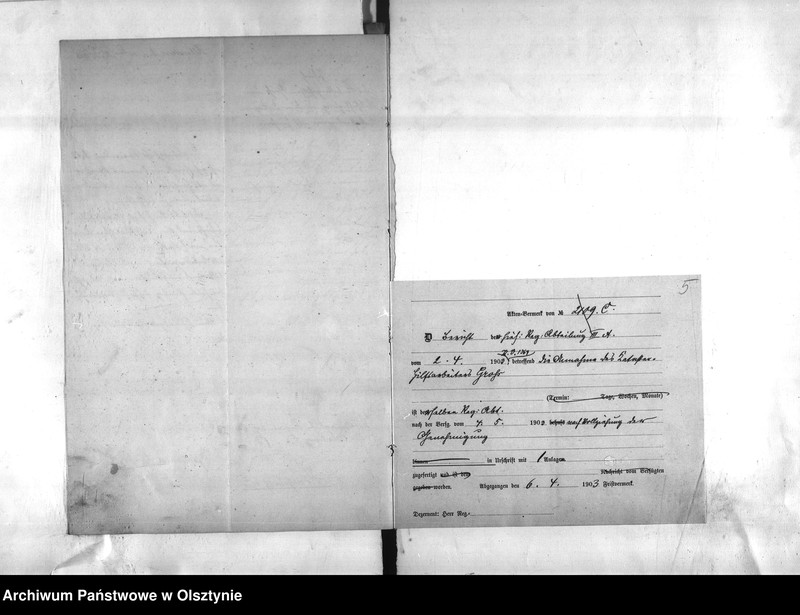 5
Akten-Vermerk von № 2109. C.
D Bericht der Reg: Abteilung III A.
vom 2. 4. 1903, betreffend die Annahme des Kataster-
hilfsarbeiters Grohs
(Termin: Tage, Wochen, Monate)
ist derselben Reg: Abt.
nach der Verfg. vom 4. 5. 1902 nach Vollziehung der
Genehmigung
in Urschrift mit 1 Anlagen
zugefertigt Nachricht vom Verfügten
gegeben worden. Abgegangen den 6. 4. 1903 Fristvermerk
Dezernent: Herr Reg.-
Archiwum Państwowe w Olsztynie